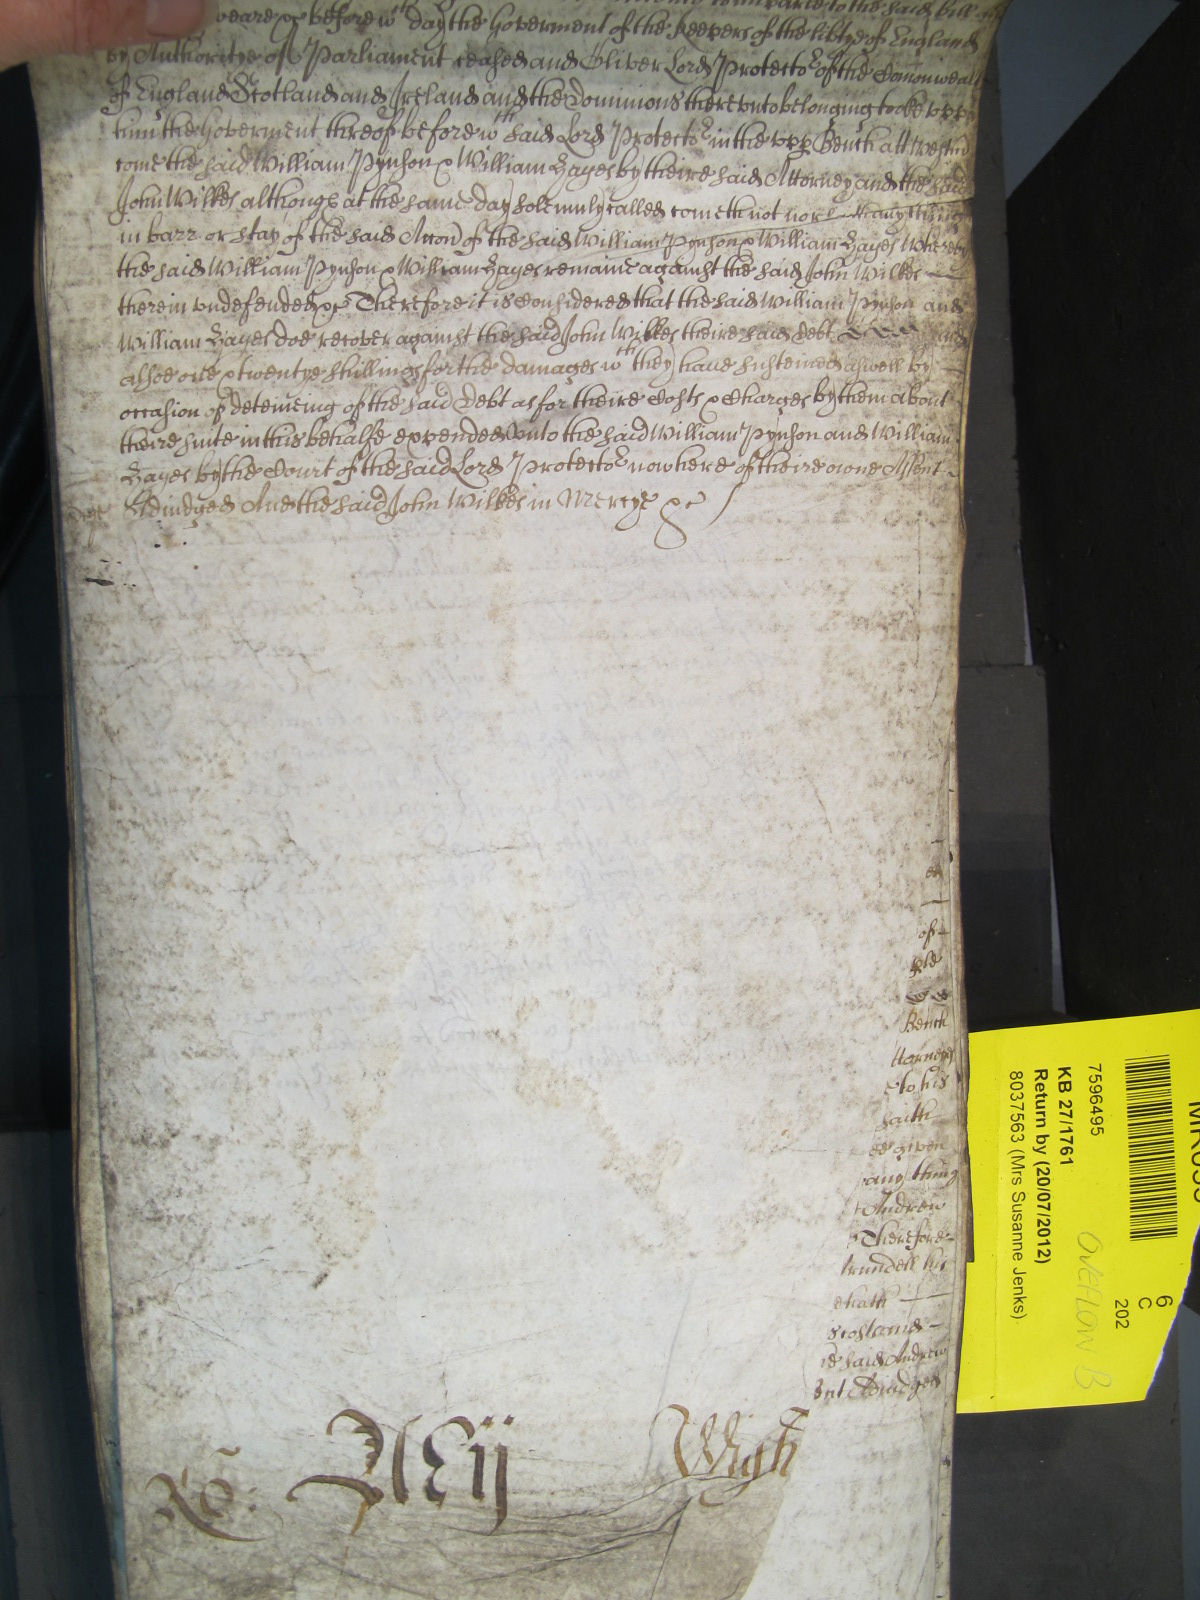 yeare &c before wch day the Goverment of the Keepers of the lib'tye of England
by Authoritye of Parliament ceased and Oliver Lord Protector of the Comonwealth
of England Scotland and Ireland and the Dominions therevnto belonging tooke vppon
him the Goverment thereof before wch said Lord Protector in the vpp Bench att Westm
come the said William Pynson & William Hayes by theire said Attorney and the said
John Wilkes althoughe at the same day solemnly called cometh not nor anything
in barr or stay of the said Accon of the said William Pynson & William Hayes Whereby
the said William Pynson & William Hayes remaine against the said John Wilkes
therein vndefended &c Therefore it is Considered that the said William Pynson and
William Hayes doe recover against the said John Wilkes theire said Debt and
alsoe one & twentye shillings for the damages wch they have susteined aswell by
occasion of deteineing of the said Debt as for theire Costs & Charges by them about
theire suite in this behalfe expended vnto the said William Pynson and William
Hayes by the Court of the said Lord Protector now here of theire owne Assent
Adiudged And the said John Wilkes in Mercye &c
of
Bench
ttorney
to his
saith
given
any thing
Andrew
Therefore
rundell his
hath
said Andrew
nt Adiudged
Ro: Wigh
MR095
7596495
KB 27/1761
Return by (20/07/2012)
8037563 (Mrs Susanne Jenks)
6
C
202
OVERFLOW B